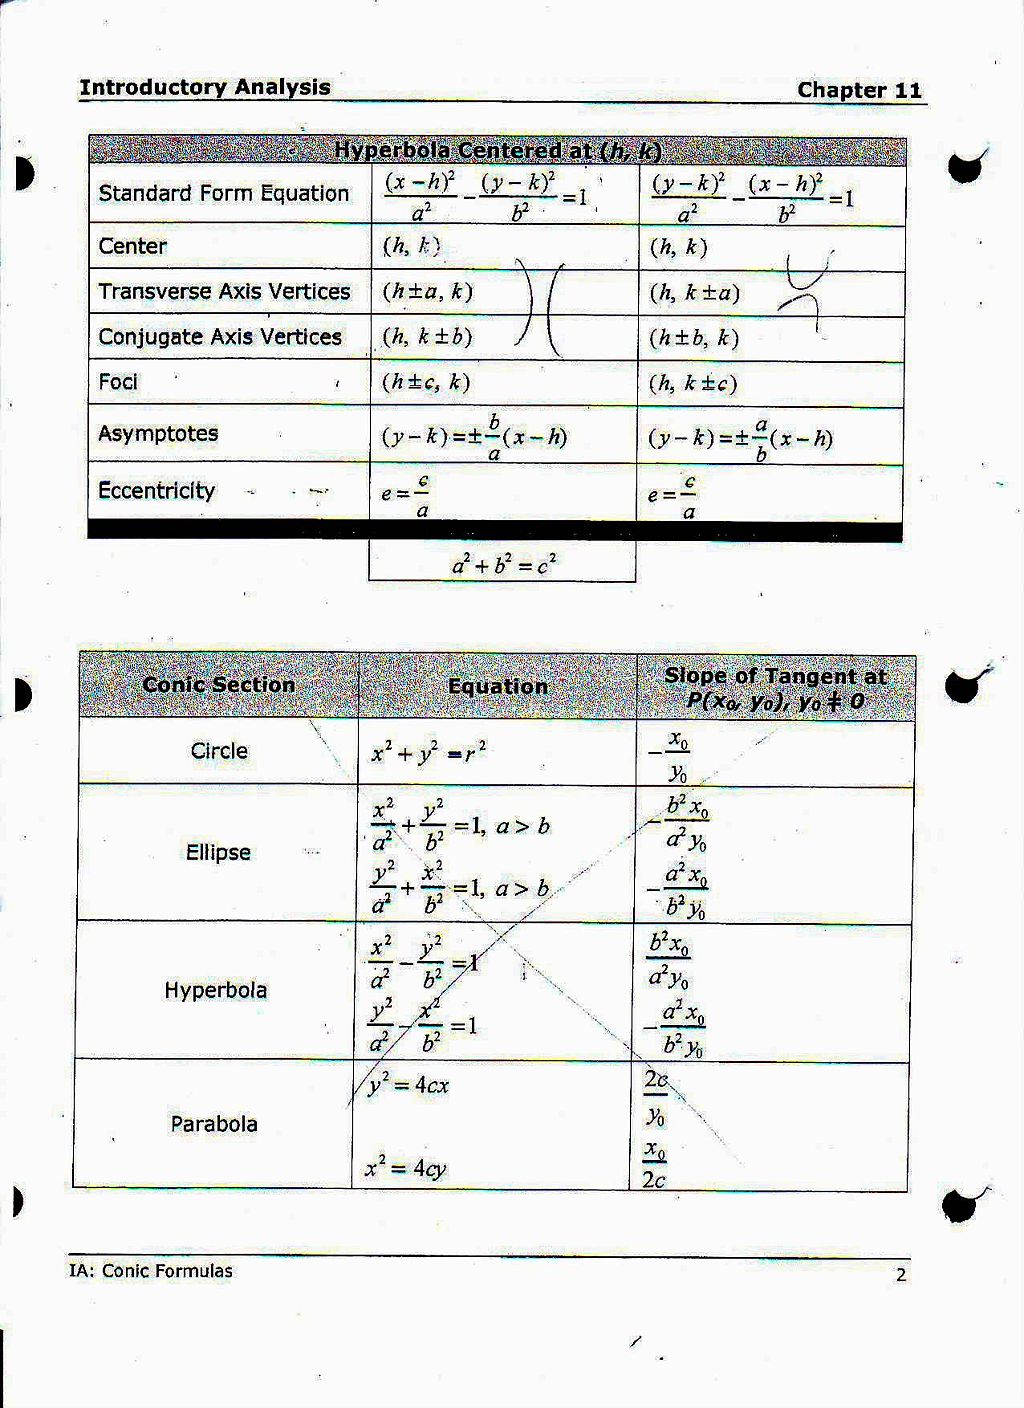 Introductory Analysis Chapter 11
Hyperbola Centered at (h, k)
Standard Form Equation (x-h)²/a² - (y-k)²/b² =1 (y-k)²/a² - (x-h)²/b² =1
Center (h, k) (h, k)
Transverse Axis Vertices (h±a, k) (h, k±a)
Conjugate Axis Vertices (h, k±b) (h±b, k)
Foci (h±c, k) (h, k±c)
Asymptotes (y-k)=±b/a(x-h) (y-k)=±a/b(x-h)
Eccentricity e=c/a e=c/a
a²+b²=c²
Conic Section Equation Slope of Tangent at
P(x₀, y₀), y₀ ≠ 0
Circle x²+y²=r² -x₀/y₀
Ellipse x²/a²+y²/b²=1, a>b -b²x₀/a²y₀
y²/a²+x²/b²=1, a>b -a²x₀/b²y₀
Hyperbola x²/a²-y²/b²=1 b²x₀/a²y₀
y²/a²-x²/b²=1 -a²x₀/b²y₀
Parabola y²=4cx 2c/y₀
x²=4cy x₀/2c
IA: Conic Formulas 2